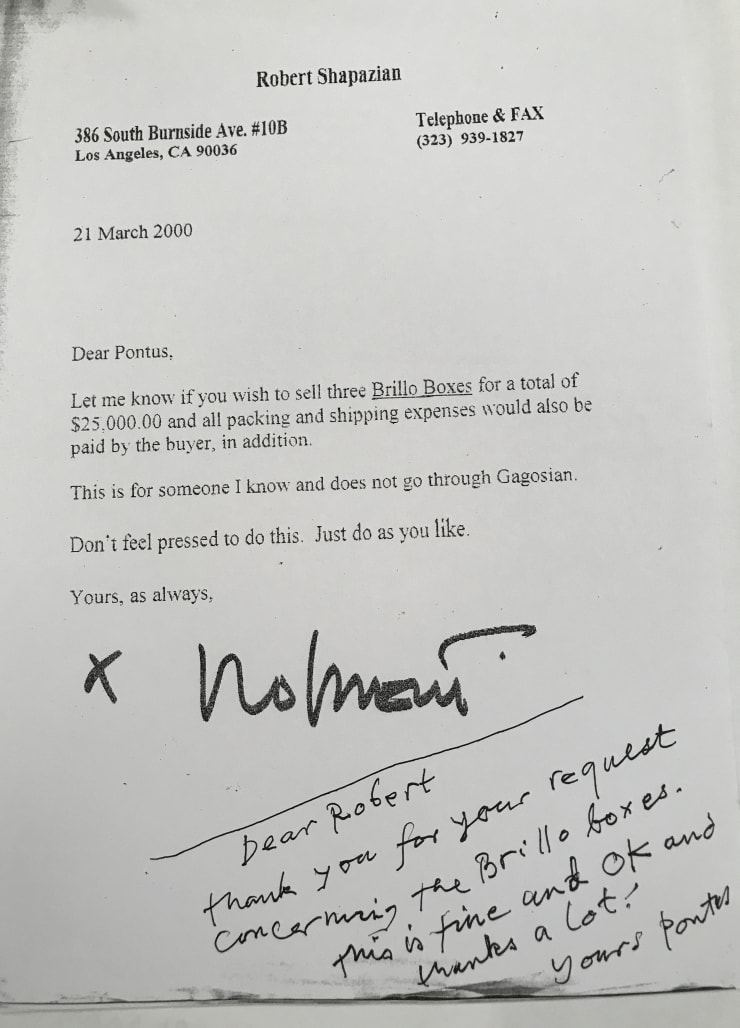 Robert Shapazian
386 South Burnside Ave. #10B
Los Angeles, CA 90036
Telephone & FAX
(323) 939-1827
21 March 2000
Dear Pontus,
Let me know if you wish to sell three Brillo Boxes for a total of
$25,000.00 and all packing and shipping expenses would also be
paid by the buyer, in addition.
This is for someone I know and does not go through Gagosian.
Don't feel pressed to do this. Just do as you like.
Yours, as always,
X
Dear Robert
thank you for your request
concerning the Brillo boxes.
this is fine and OK and
thanks a lot!
yours pontus